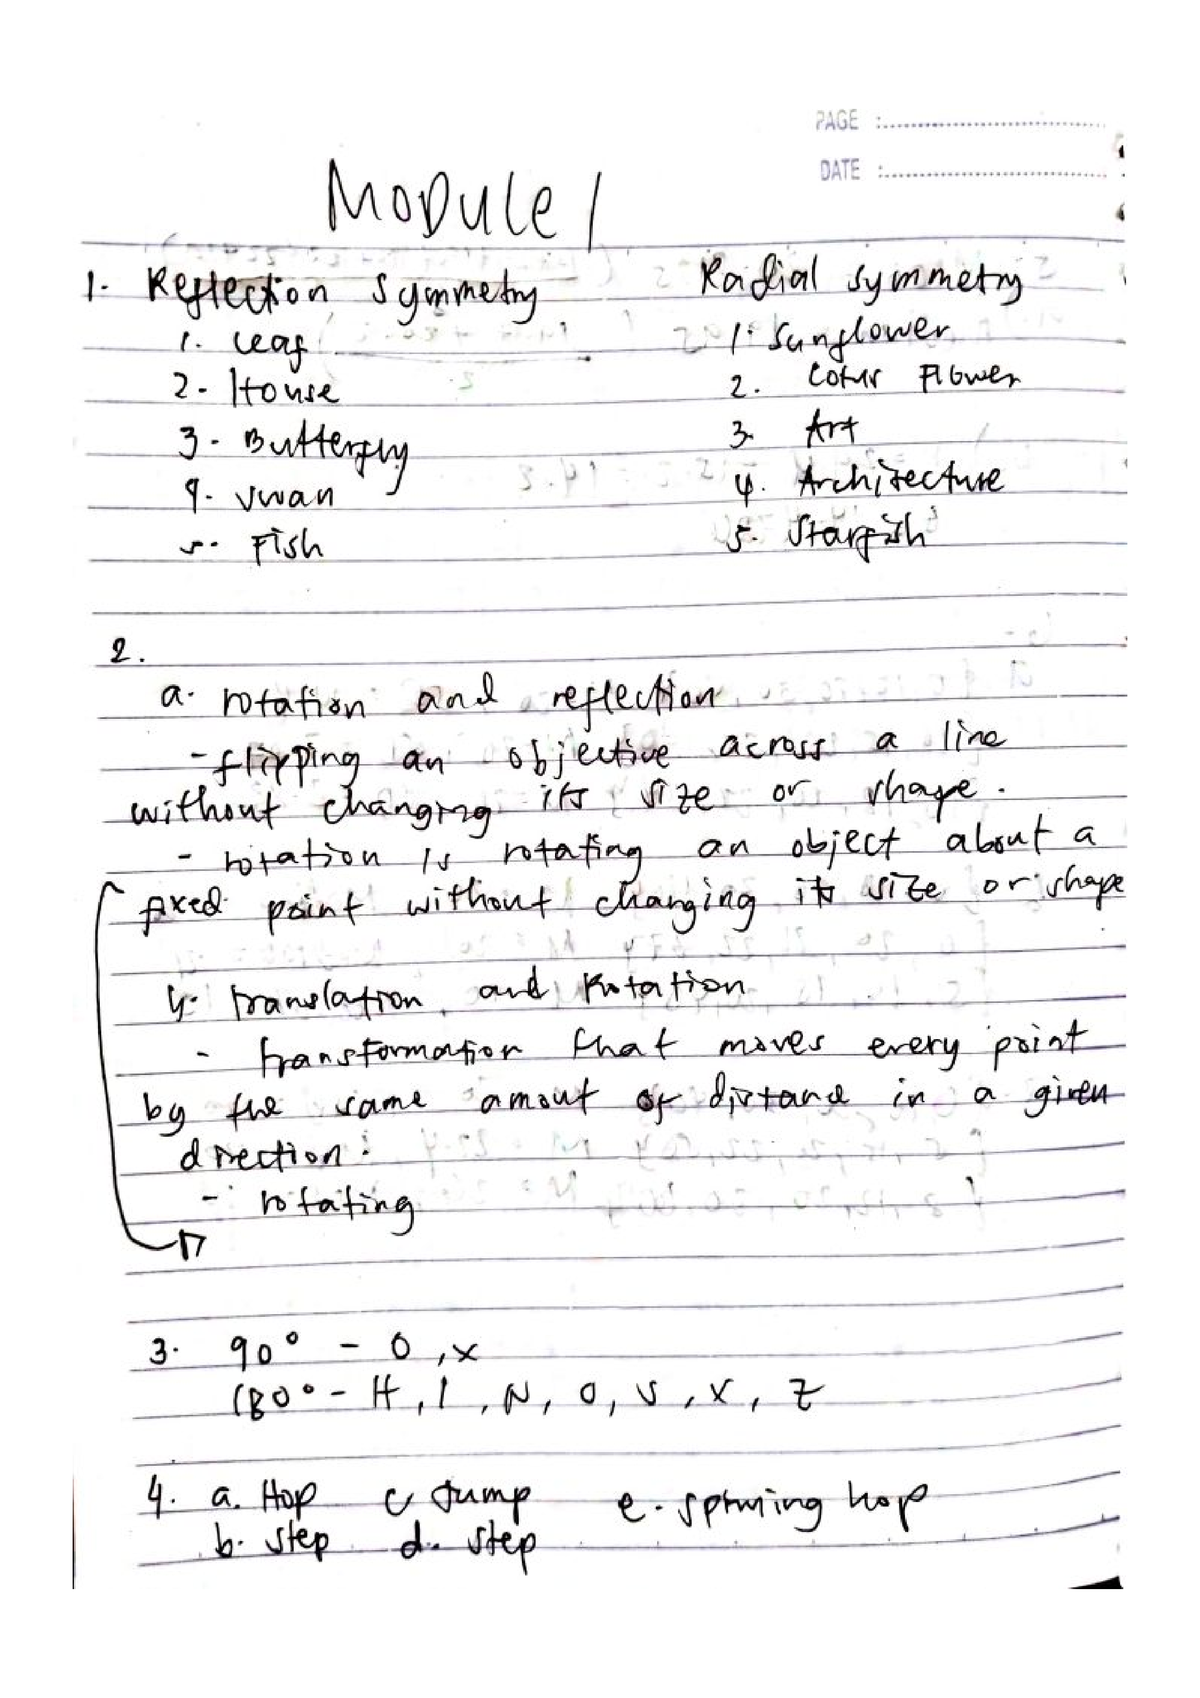 PAGE :
DATE :
Module 1
1. Reflection Symmetry Radial symmetry
1. Leaf 1. Sunflower
2. House 2. Lotus Flower
3. Butterfly 3. Art
4. swan 4. Architecture
5. Fish 5. Starfish
2.
a. rotation and reflection
- flipping an objective across a line
without changing its size or shape.
- rotation is rotating an object about a
fixed point without changing its size or shape
b. translation and Rotation
- transformation that moves every point
by the same amout of distance in a given
direction.
- rotating
3. 90° - O, X
180° - H, I, N, O, S, X, Z
4. a. Hop c Jump e. spinning hop
b. step d. step